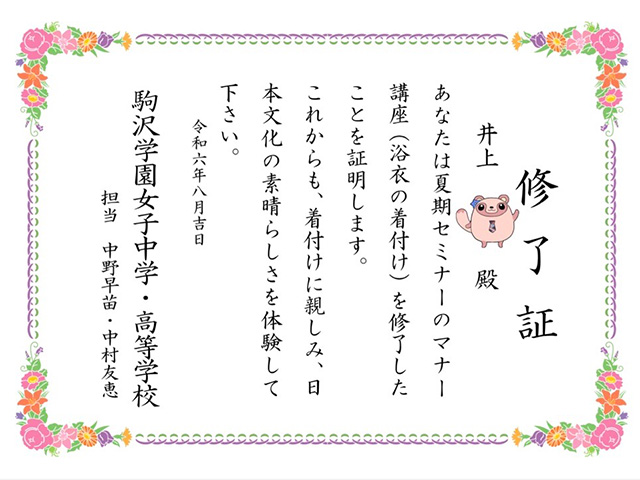 修了証
井上　殿
あなたは夏期セミナーのマナー
講座（浴衣の着付け）を修了した
ことを証明します。
これからも、着付けに親しみ、日
本文化の素晴らしさを体験して
下さい。
令和六年八月吉日
駒沢学園女子中学・高等学校
担当　中野早苗・中村友恵